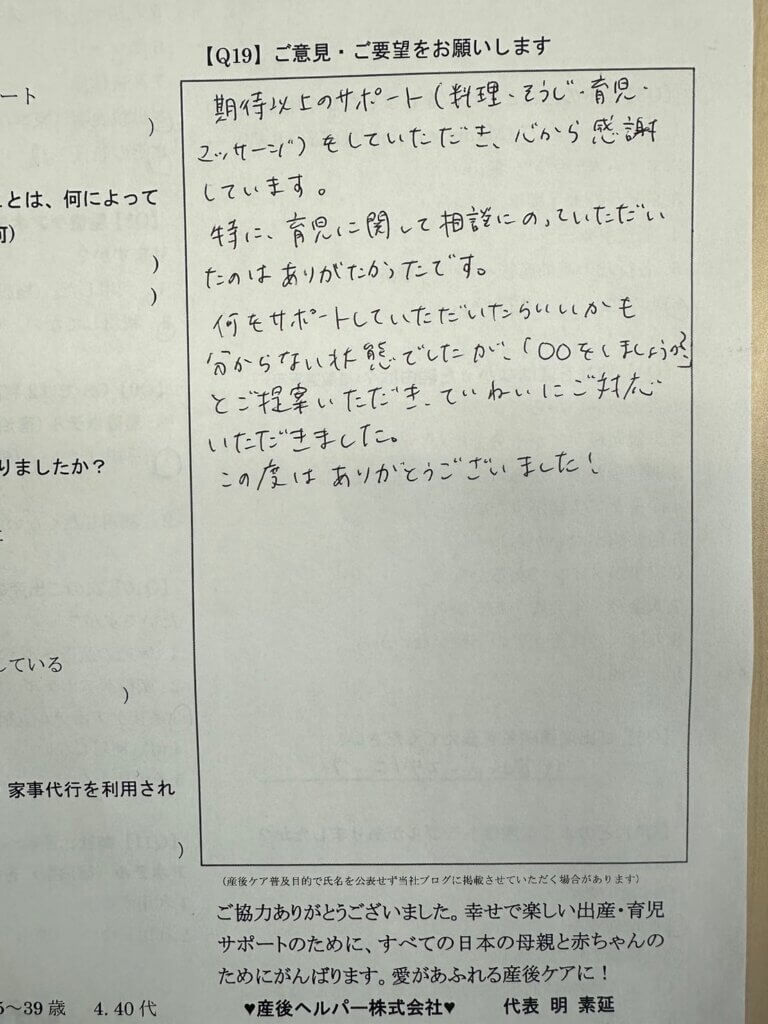 【Q19】ご意見・ご要望をお願いします
期待以上のサポート(料理・そうじ・育児・
マッサージ)をしていただき、心から感謝
しています。
特に、育児に関して相談にのっていただい
たのはありがたかったです。
何をサポートしていただいたらいいかも
分からない状態でしたが、「〇〇をしましょうか?」
とご提案いただき、ていねいにご対応
いただきました。
この度はありがとうございました!
(産後ケア普及目的で氏名を公表せず当社ブログに掲載させていただく場合があります)
ご協力ありがとうございました。幸せで楽しい出産・育児
サポートのために、すべての日本の母親と赤ちゃんの
ためにがんばります。愛があふれる産後ケアに!
♥産後ヘルパー株式会社♥ 代表 明 素延
ート
)
とは、何によって
)
)
りましたか?
している
)
家事代行を利用され
)
5~39歳 4.40代